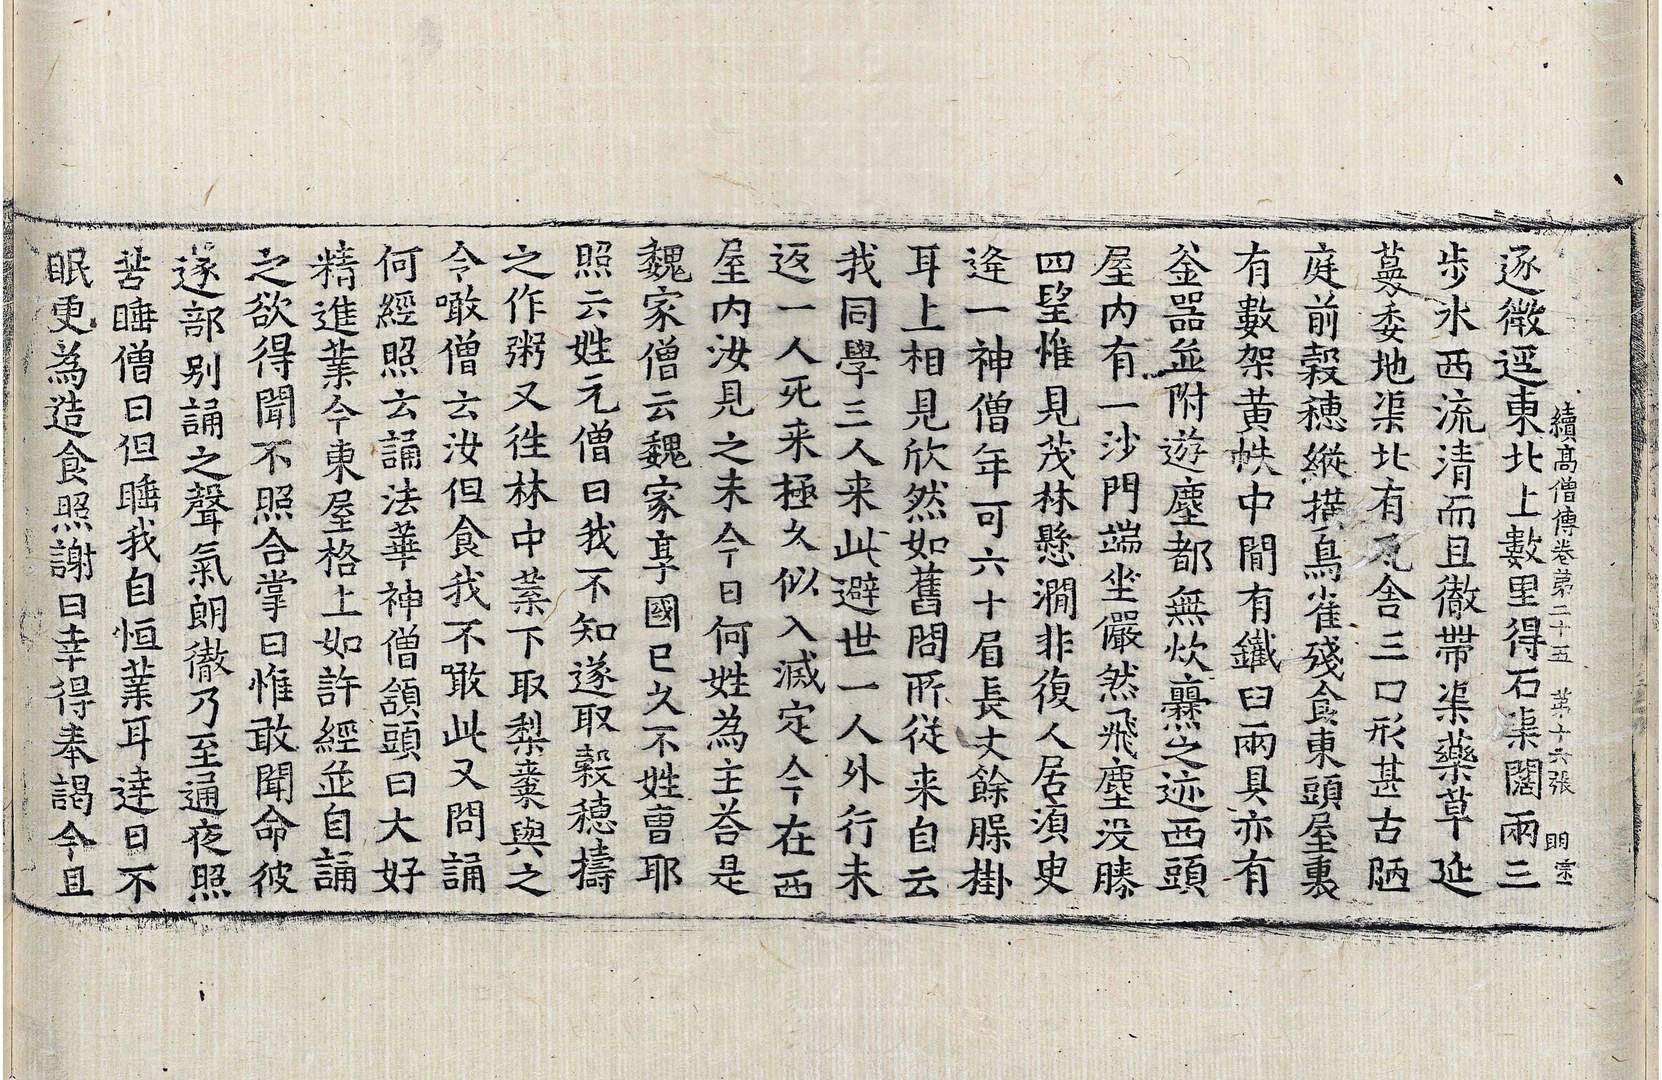 續高僧傳卷第二十五 第十六張 明
逐微逕東北上數里得石渠闊兩三
步水西流清而且徹帶渠藥草延
蔓委地渠北有瓦舍三口形甚古陋
庭前穀穗縱撗鳥雀殘食東頭屋裏
有數架黃帙中間有鐵臼兩具亦有
釜器並附遊塵都無炊爨之迹西頭
屋內有一沙門端坐儼然飛塵没膝
四望惟見茂林懸澗非復人居須臾
逢一神僧年可六十眉長丈餘𦜇掛
耳上相見欣然如舊問所從来自云
我同學三人来此避世一人外行未
返一人死来極久似入滅定今在西
屋內汝見之未今日何姓為主荅是
魏家僧云魏家享國已久不姓曺耶
照云姓元僧曰我不知遂取穀穗擣
之作粥又徃林中葉下取梨棗與之
令噉僧云汝但食我不噉此又問誦
何經照云誦法華神僧頷頭曰大好
精進業今東屋格上如許經並自誦
之欲得聞不照合掌曰惟敢聞命彼
遂部别誦之聲氣朗徹乃至通夜照
苦睡僧曰但睡我自恒業耳達日不
眠更為造食照謝曰幸得奉謁今且